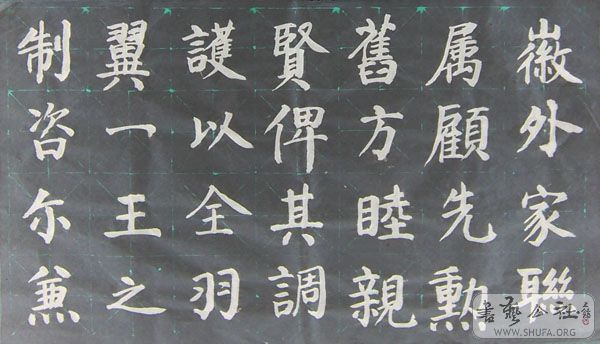 徽外家聯
属顧先勳
舊方睦親
賢俾其調
護以全羽
翼一王之
制咨尓兼
書藝公社
WWW.SHUFA.ORG